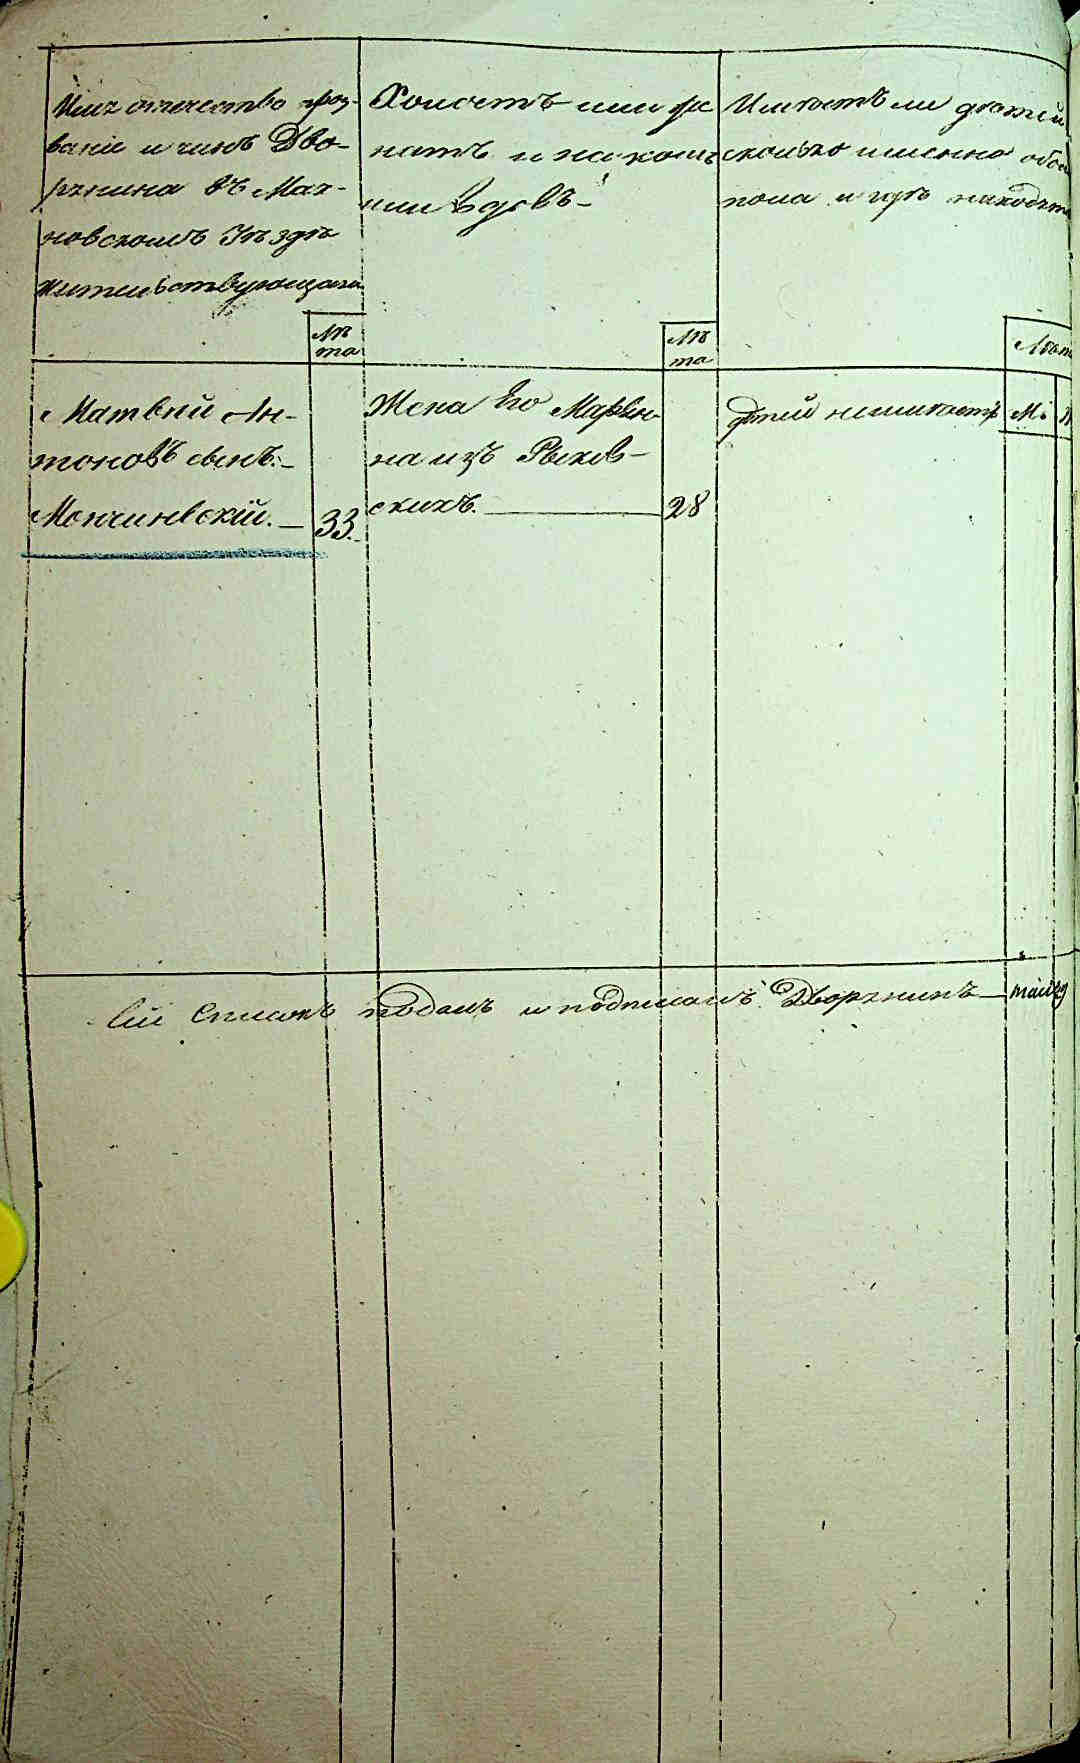 Имя отечество проз-
ваніе и чинъ Дво-
рянина въ Мах-
новскомъ Уѣздѣ
жительствующаго
Лѣ
та
Холостъ или же
натъ и на комъ
или Вдовъ
Лѣ
та
Имѣетъ ли дѣтей
сколько именно обое
пола и гдѣ находят
Лѣта
Матвей Ан-
тоновъ сынъ
Мончинскій. 33.
Жена Его Мариян-
на изъ Рыхов-
скихъ. 28
дѣтей неимѣетъ
М:
Сій Списокъ подалъ и подписалъ Дворянинъ